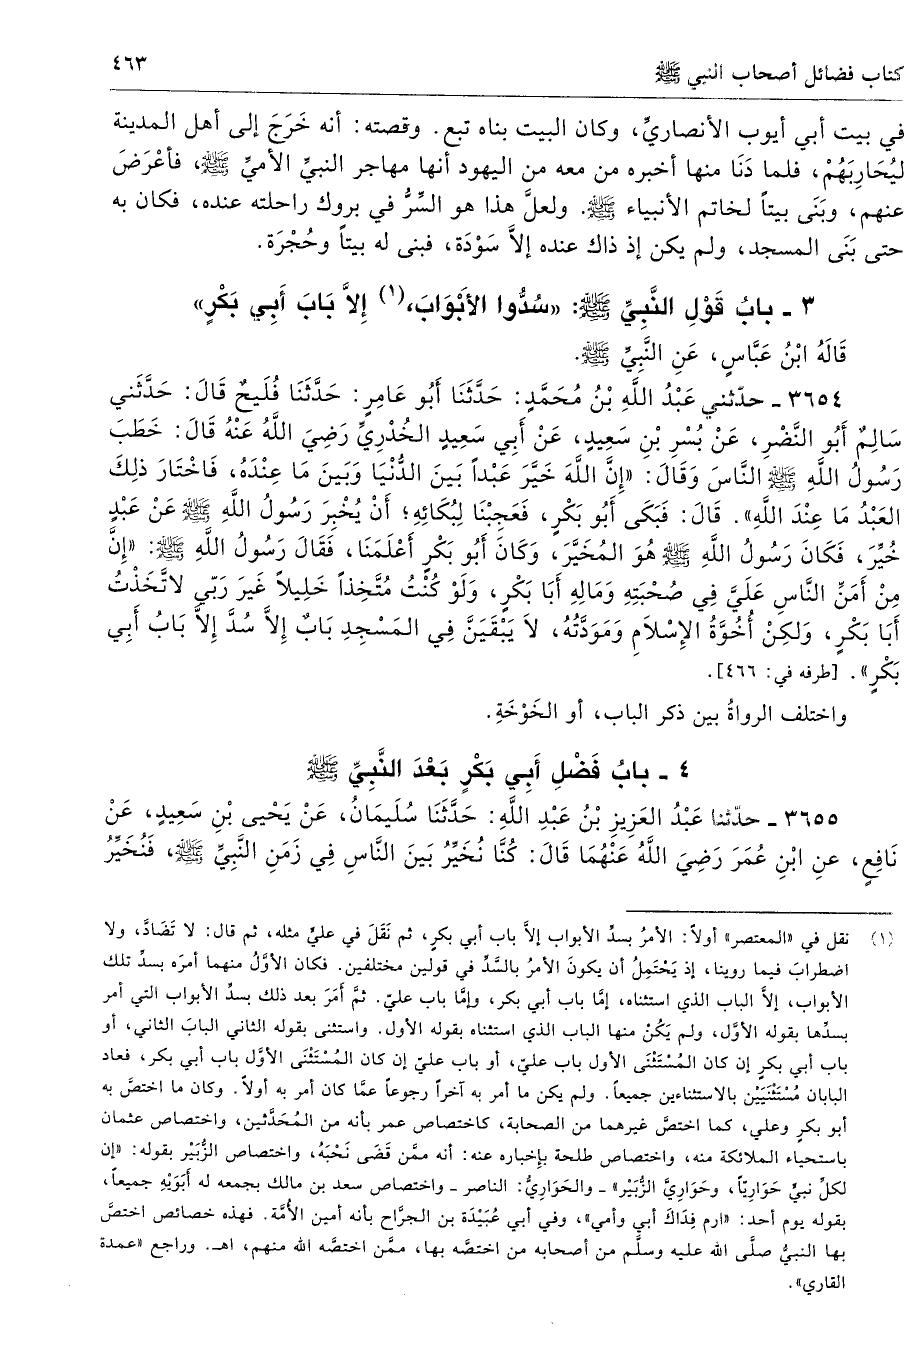 كتاب فضائل أصحاب النبي ﷺ ٤٦٣
في بيت أبي أيوب الأنصاريِّ، وكان البيت بناه تبع. وقصته: أنه خَرَجَ إلى أهل المدينة
ليُحَارِبَهُمْ، فلما دَنَا منها أخبره من معه من اليهود أنها مهاجر النبيِّ الأميِّ ﷺ، فأعْرَضَ
عنهم، وبَنَى بيتاً لخاتم الأنبياء ﷺ. ولعلَّ هذا هو السِّرُّ في بروك راحلته عنده، فكان به
حتى بَنَى المسجد، ولم يكن إذ ذاك عنده إلاَّ سَوْدَة، فبنى له بيتاً وحُجْرَة.
٣ ـ بابُ قَوْلِ النَّبِيِّ ﷺ: «سُدُّوا الأَبْوَابَ،(١) إِلاَّ بَابَ أَبِي بَكْرٍ»
قَالَهُ ابْنُ عَبَّاسٍ، عَنِ النَّبِيِّ ﷺ.
٣٦٥٤ ـ حدّثني عَبْدُ اللَّهِ بْنُ مُحَمَّدٍ: حَدَّثَنَا أَبُو عَامِرٍ: حَدَّثَنَا فُلَيحٌ قَالَ: حَدَّثَني
سَالِمٌ أَبُو النَّضْرِ، عَنْ بُسْرِ بْنِ سَعِيدٍ، عَنْ أَبِي سَعِيدٍ الخُدْرِيِّ رَضِيَ اللَّهُ عَنْهُ قَالَ: خَطَبَ
رَسُولُ اللَّهِ ﷺ النَّاسَ وَقَالَ: «إِنَّ اللَّهَ خَيَّرَ عَبْداً بَينَ الدُّنْيَا وَبَينَ مَا عِنْدَهُ، فَاخْتَارَ ذلِكَ
العَبْدُ مَا عِنْدَ اللَّهِ». قَالَ: فَبَكَى أَبُو بَكْرٍ، فَعَجِبْنَا لِبُكَائِهِ؛ أَنْ يُخْبِرَ رَسُولُ اللَّهِ ﷺ عَنْ عَبْدٍ
خُيِّرَ، فَكَانَ رَسُولُ اللَّهِ ﷺ هُوَ المُخَيَّرَ، وَكَانَ أَبُو بَكْرٍ أَعْلَمَنَا، فَقَالَ رَسُولُ اللَّهِ ﷺ: «إِنَّ
مِنْ أَمَنِّ النَّاسِ عَلَيَّ فِي صُحْبَتِهِ وَمَالِهِ أَبَا بَكْرٍ، وَلَوْ كُنْتُ مُتَّخِذاً خَلِيلاً غَيرَ رَبِّي لاتَّخَذْتُ
أَبَا بَكْرٍ، وَلكِنْ أُخُوَّةُ الإِسْلَامِ وَمَوَدَّتُهُ، لَا يَبْقَيَنَّ فِي المَسْجِدِ بَابٌ إِلاَّ سُدَّ إِلاَّ بَابُ أَبِي
بَكْرٍ». [طرفه في: ٤٦٦].
واختلف الرواةُ بين ذكر الباب، أو الخَوْخَةِ.
٤ ـ بابُ فَضْلِ أَبِي بَكْرٍ بَعْدَ النَّبِيِّ ﷺ
٣٦٥٥ ـ حدّثنا عَبْدُ العَزِيزِ بْنُ عَبْدِ اللَّهِ: حَدَّثَنَا سُلَيمَانُ، عَنْ يَحْيى بْنِ سَعِيدٍ، عَنْ
نَافِعٍ، عنِ ابْنِ عُمَرَ رَضِيَ اللَّهُ عَنْهُمَا قَالَ: كُنَّا نُخَيِّرُ بَينَ النَّاسِ فِي زَمَنِ النَّبِيِّ ﷺ، فَنُخَيِّرُ
(١) نقل في «المعتصر» أولاً: الأمرُ بسدِّ الأبواب إلاَّ باب أبي بكر، ثم نَقَلَ في عليٍّ مثله، ثم قال: لا تَضَادَّ، ولا
اضطرابَ فيما روينا، إذ يَحْتَمِلُ أن يكونَ الأمرُ بالسَّدِّ في قولين مختلفين. فكان الأوَّلُ منهما أمرَه بسدِّ تلك
الأبواب، إلاَّ الباب الذي استثناه، إمَّا باب أبي بكر، وإمَّا باب عليّ. ثمَّ أَمَرَ بعد ذلك بسدِّ الأبواب التي أمر
بسدِّها بقوله الأوَّل، ولم يَكُنْ منها الباب الذي استثناه بقوله الأول. واستثنى بقوله الثاني البابَ الثاني، أو
باب أبي بكرٍ إن كان المُسْتَثْنَى الأول باب عليّ، أو باب عليّ إن كان المُسْتَثْنَى الأوَّل باب أبي بكر، فعاد
البابان مُسْتَثْنَيَيْن بالاستثناءين جميعاً. ولم يكن ما أمر به آخراً رجوعاً عمَّا كان أمر به أولاً. وكان ما اختصَّ به
أبو بكرٍ وعلي، كما اختصَّ غيرهما من الصحابة، كاختصاص عمر بأنه من المُحَدَّثين، واختصاص عثمان
باستحياء الملائكة منه، واختصاص طلحة بإخباره عنه: أنه ممَّن قَضَى نَحْبَهُ، واختصاص الزُّبَيْر بقوله: «إن
لكلِّ نبيٍّ حَوَارِيّاً، وحَوَارِيَّ الزُّبَيْر» ـ والحَوَارِيُّ: الناصر ـ واختصاص سعد بن مالك بجمعه له أَبَوَيْهِ جميعاً،
بقوله يوم أحد: «ارم فِدَاكَ أبي وأمي»، وفي أبي عُبَيْدَة بن الجرَّاح بأنه أمين الأُمَّة. فهذه خصائص اختصَّ
بها النبيُّ صلَّى الله عليه وسلَّم من أصحابه من اختصَّه بها، ممَّن اختصَّه الله منهم، اهـ. وراجع «عمدة
القاري».